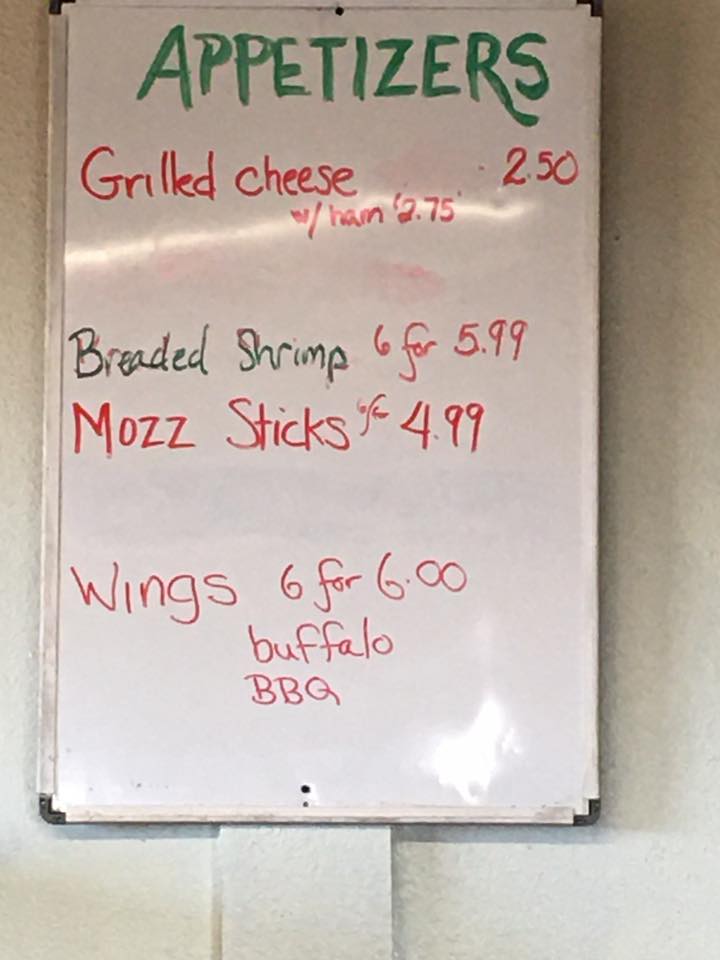 APPETIZERS
Grilled cheese 2.50
w/ ham 2.75
Breaded Shrimp 6 for 5.99
Mozz Sticks 4.99
Wings 6 for 6.00
buffalo
BBQ